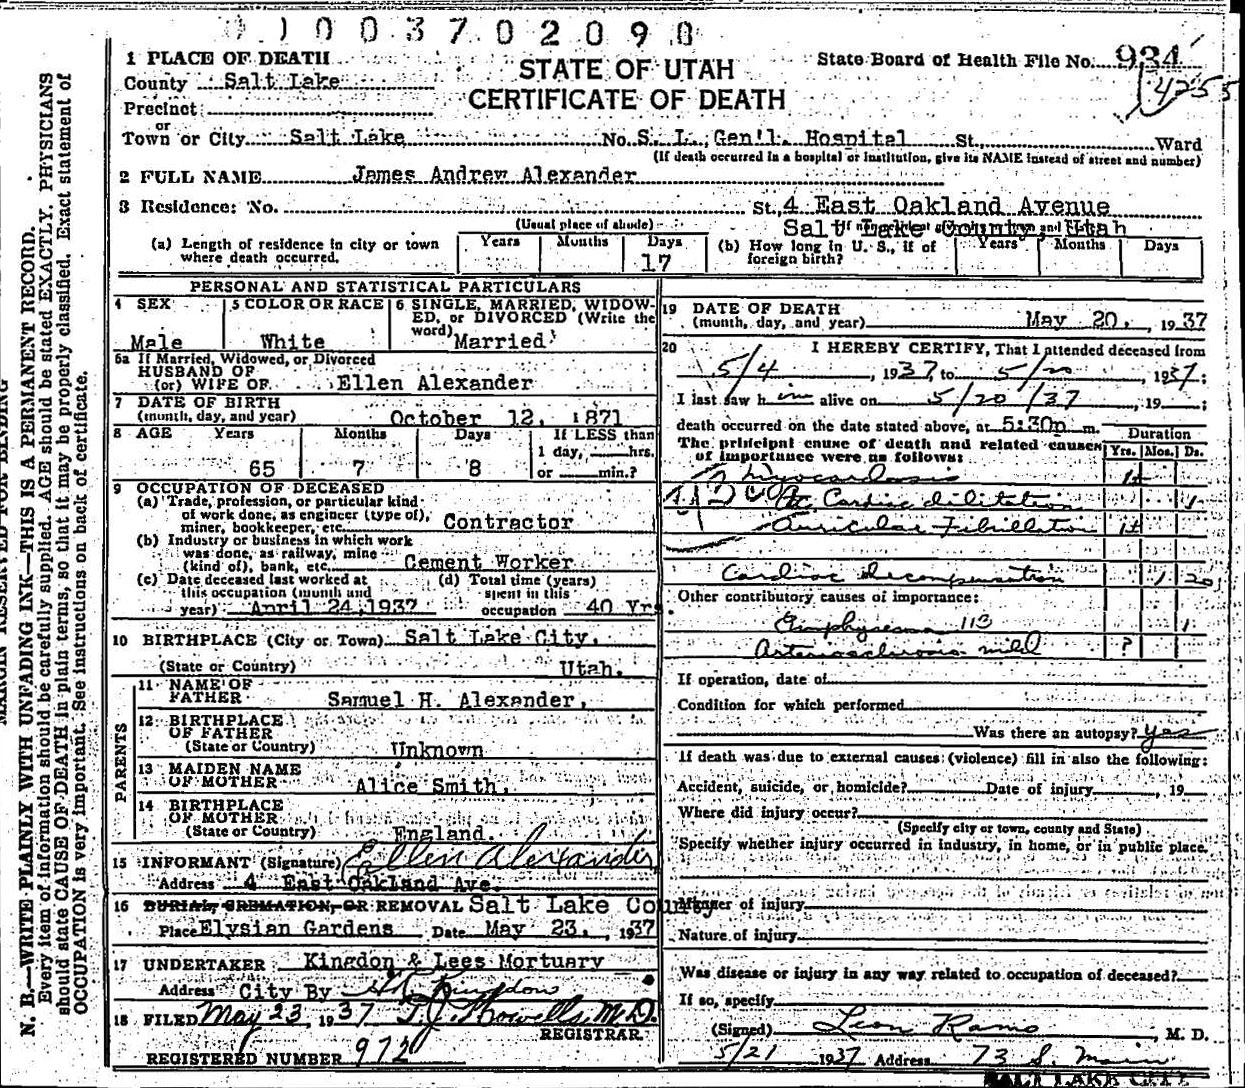 01003702090
1 PLACE OF DEATH
STATE OF UTAH
CERTIFICATE OF DEATH
State Board of Health File No. 934
4255
County Salt Lake
Precinct
or
Town or City Salt Lake No. S. L. Gen'l. Hospital St., Ward
(If death occurred in a hospital or institution, give its NAME instead of street and number)
2 FULL NAME James Andrew Alexander
3 Residence: No. St., 4 East Oakland Avenue
(Usual place of abode) Salt Lake County, Utah
(a) Length of residence in city or town where death occurred. Years Months Days 17
(b) How long in U. S., if of foreign birth? Years Months Days
PERSONAL AND STATISTICAL PARTICULARS
4 SEX Male
5 COLOR OR RACE White
6 SINGLE, MARRIED, WIDOWED, or DIVORCED (Write the word) Married
6a If Married, Widowed, or Divorced
HUSBAND OF
(or) WIFE OF Ellen Alexander
7 DATE OF BIRTH
(month, day, and year) October 12, 1871
8 AGE Years 65 Months 7 Days 8 If LESS than 1 day, hrs. or min.?
9 OCCUPATION OF DECEASED
(a) Trade, profession, or particular kind
of work done, as engineer (type of),
miner, bookkeeper, etc. Contractor
(b) Industry or business in which work
was done, as railway, mine
(kind of), bank, etc. Cement Worker
(c) Date deceased last worked at
this occupation (month and
year) April 24, 1937
(d) Total time (years)
spent in this
occupation 40 Yrs
10 BIRTHPLACE (City or Town) Salt Lake City,
(State or Country) Utah.
PARENTS
11 NAME OF
FATHER Samuel H. Alexander,
12 BIRTHPLACE
OF FATHER
(State or Country) Unknown
13 MAIDEN NAME
OF MOTHER Alice Smith,
14 BIRTHPLACE
OF MOTHER
(State or Country) England.
15 INFORMANT (Signature) Ellen Alexander
Address 4 East Oakland Ave.
16 BURIAL, CREMATION, OR REMOVAL Salt Lake County
Place Elysian Gardens Date May 23, 1937
17 UNDERTAKER Kingdon & Lees Mortuary
Address City By Kingdon
18 FILED May 23, 1937 T. J. Howells, M.D.
REGISTRAR.
REGISTERED NUMBER 972
19 DATE OF DEATH
(month, day, and year) May 20, 1937
20 I HEREBY CERTIFY, That I attended deceased from
5/4, 1937, to 5/20, 1937;
I last saw him alive on 5/20/37, 19 ;
death occurred on the date stated above, at 5:30p m.
The principal cause of death and related causes
of importance were as follows:
Duration
Yrs. Mos. Ds.
Myocardosis 1+
Cardiac dilitation 1
Auricular Fibrillation 1+
Cardiac decompensation 1 20
Other contributory causes of importance:
Emphysema 113 1
Arteriosclerosis mild ?
If operation, date of
Condition for which performed
Was there an autopsy? yes
If death was due to external causes (violence) fill in also the following:
Accident, suicide, or homicide? Date of injury , 19
Where did injury occur?
(Specify city or town, county and State)
Specify whether injury occurred in industry, in home, or in public place.
Manner of injury
Nature of injury
Was disease or injury in any way related to occupation of deceased?
If so, specify
(Signed) Leon Rams, M. D.
5/21 1937 Address 73 S. Main
SALT LAKE CITY
MARGIN RESERVED FOR BINDING
N. B.—WRITE PLAINLY WITH UNFADING INK—THIS IS A PERMANENT RECORD.
Every item of information should be carefully supplied. AGE should be stated EXACTLY. PHYSICIANS
should state CAUSE OF DEATH in plain terms, so that it may be properly classified. Exact statement of
OCCUPATION is very important. See instructions on back of certificate.